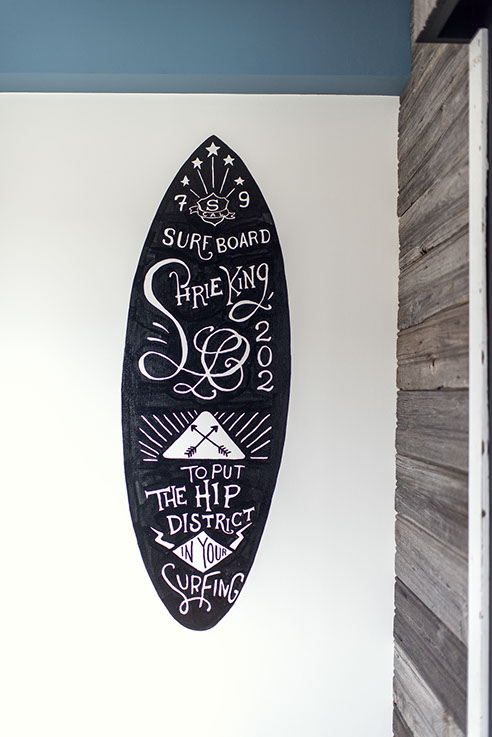 7 S 9
CAL
SURFBOARD
SHRIEKING
202
TO PUT
THE HIP
DISTRICT
IN YOUR
SURFING